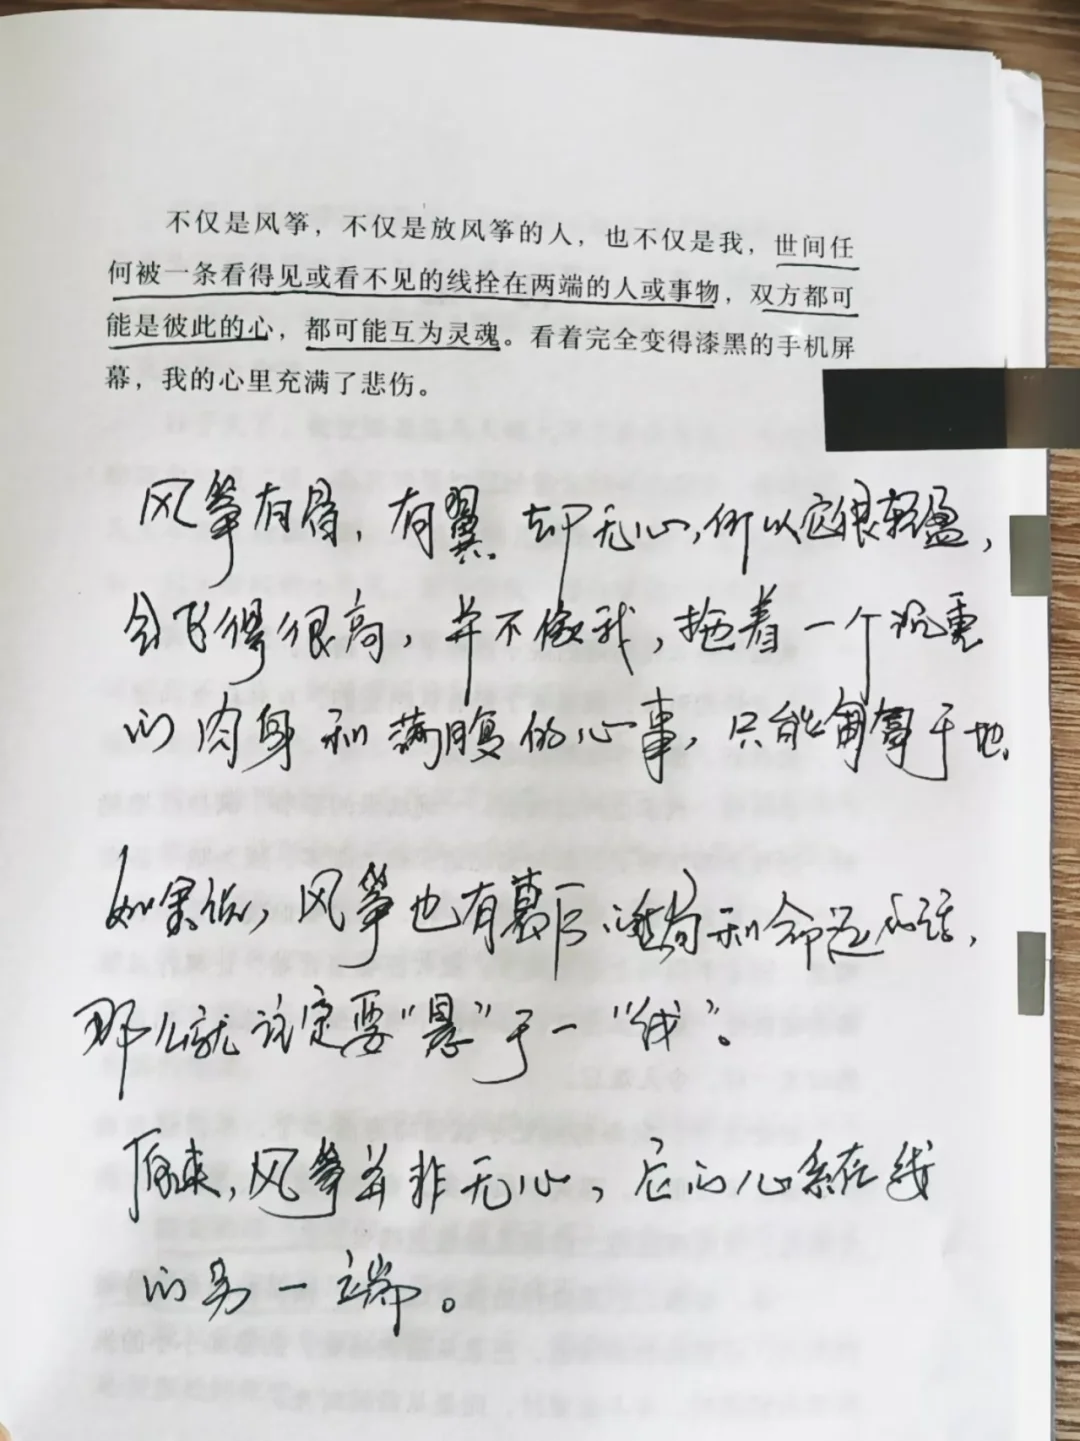 不仅是风筝，不仅是放风筝的人，也不仅是我，世间任
何被一条看得见或看不见的线拴在两端的人或事物，双方都可
能是彼此的心，都可能互为灵魂。看着完全变得漆黑的手机屏
幕，我的心里充满了悲伤。
风筝有骨，有翼，却无心，所以它很轻盈，
会飞得很高，并不像我，拖着一个沉重
的肉身和满腹的心事，只能匍匐于地。
如果说，风筝也有幕后和命运的话，
那么就注定要“悬”于一“线”。
原来，风筝并非无心，它的心系在线
的另一端。